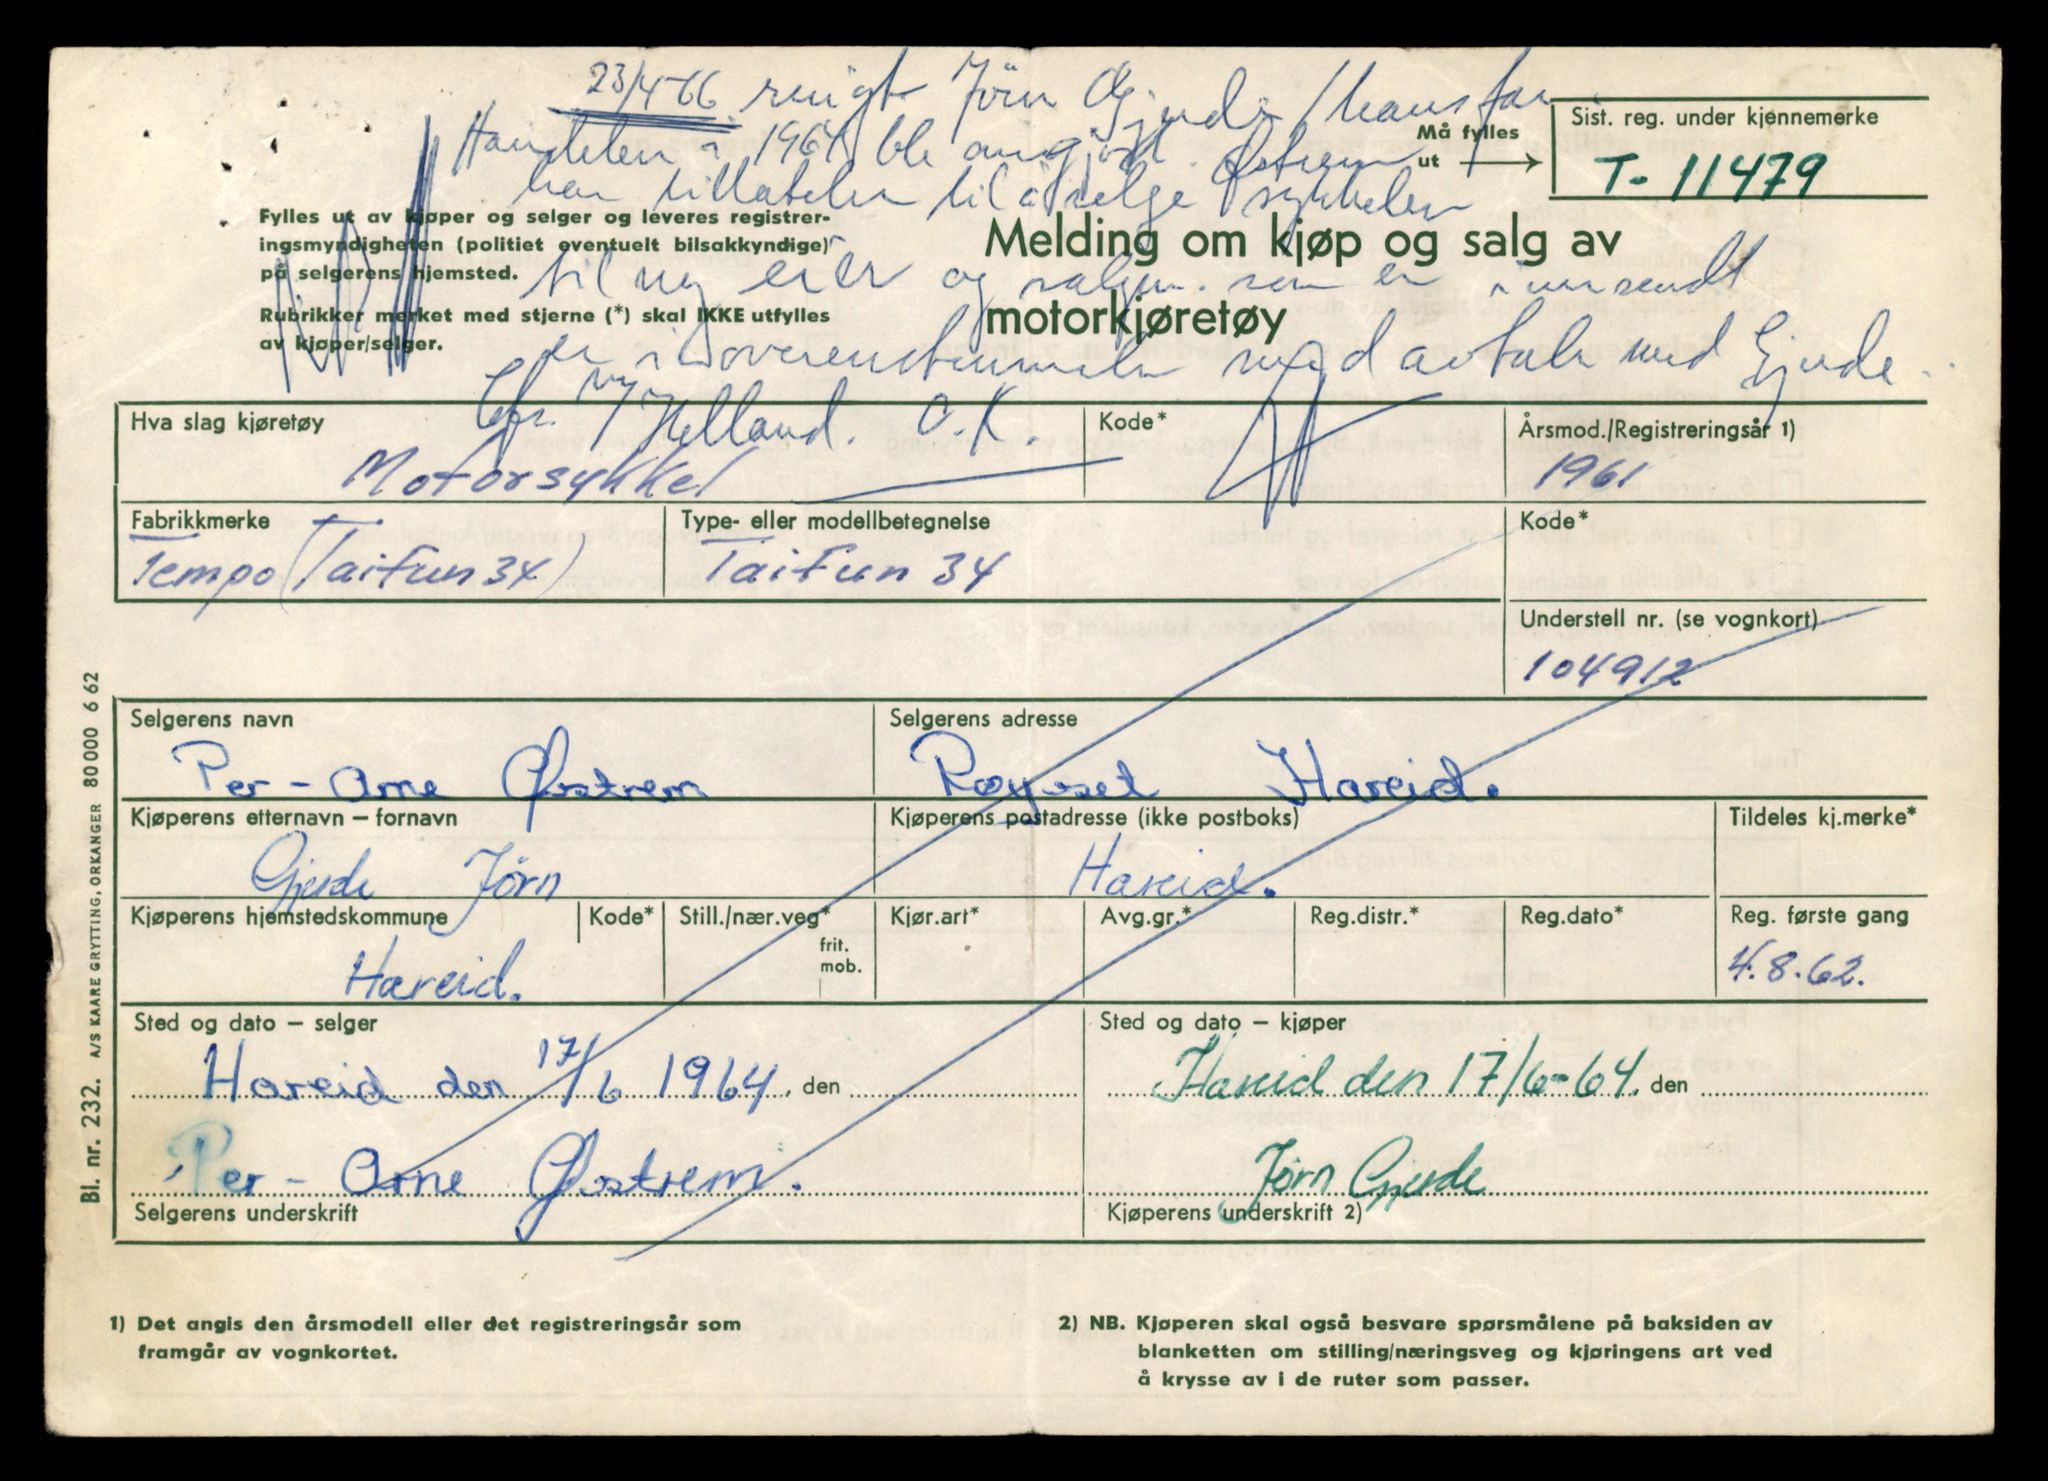 23/4-66 ringt Jörn Gjerde / hans far.
Handelen i 1964 ble annullert. Østrem
har tillatelse til å selge sykkelen
til ny eier og salgsm. som er innsendt
er i overenstemmelse med avtale med Gjerde.
Helland. O.K.
Må fylles
ut
Sist. reg. under kjennemerke
T- 11479
Fylles ut av kjøper og selger og leveres registrer-
ingsmyndigheten (politiet eventuelt bilsakkyndige)
på selgerens hjemsted.
Rubrikker merket med stjerne (*) skal IKKE utfylles
av kjøper/selger.
Melding om kjøp og salg av
motorkjøretøy
Hva slag kjøretøy
Motorsykkel
Kode*
Årsmod./Registreringsår 1)
1961
Fabrikkmerke
Tempo (Taifun 34)
Type- eller modellbetegnelse
Taifun 34
Kode*
Understell nr. (se vognkort)
104912
Selgerens navn
Per - Arne Østrem
Selgerens adresse
Røyset Hareid.
Kjøperens etternavn – fornavn
Gjerde Jörn
Kjøperens postadresse (ikke postboks)
Hareid.
Tildeles kj.merke*
Kjøperens hjemstedskommune
Hareid.
Kode*
Still./nær.veg*
frit.
mob.
Kjør.art*
Avg.gr.*
Reg.distr.*
Reg.dato*
Reg. første gang
4.8.62.
Sted og dato – selger
Hareid den 17/6 1964, den
Per - Arne Østrem.
Selgerens underskrift
Sted og dato – kjøper
Hareid den 17/6-64. den
Jörn Gjerde
Kjøperens underskrift 2)
Bl. nr. 232. A/S KAARE GRYTTING, ORKANGER 80000 6 62
1) Det angis den årsmodell eller det registreringsår som
framgår av vognkortet.
2) NB. Kjøperen skal også besvare spørsmålene på baksiden av
blanketten om stilling/næringsveg og kjøringens art ved
å krysse av i de ruter som passer.